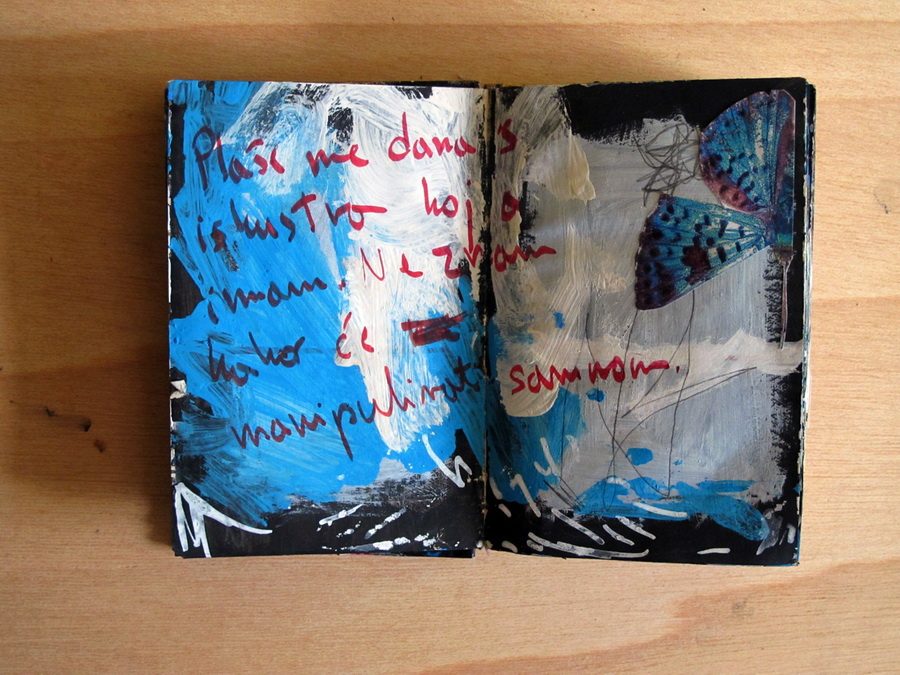 Plaše me danas
iskustva koja
imam. Ne znam
kako će
manipulirati samnom.